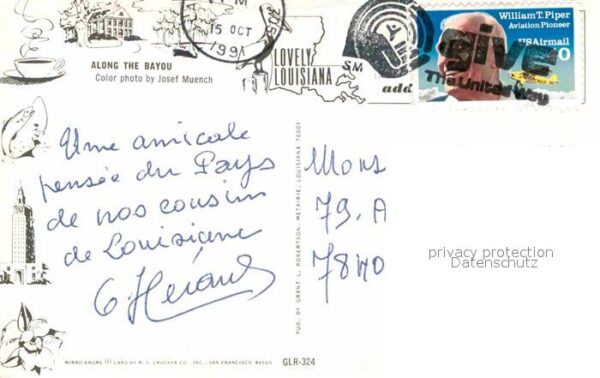 15 OCT
199
ALONG THE BAYOU
Color photo by Josef Muench
LOVELY
LOUISIANA
SM
add
William T. Piper
Aviation Pioneer
USAirmail
0
give
The United Way
Une amicale
pensée du Pays
de nos cousins
de Louisiane
Mons
79. A
privacy protection
Datenschutz
PUB. BY GRANT L. ROBERTSON, METAIRIE, LOUISIANA 70001
MIRRO-KROME ® CARD BY H. S. CROCKER CO., INC., SAN FRANCISCO,
GLR-324